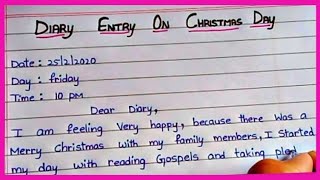 Diary Entry On Christmas Day
Date : 25/2/2020
Day : friday
Time : 10 pm
Dear Diary,
I am feeling very happy, because there was a
Merry Christmas with my family members, I started
my day with reading Gospels and taking